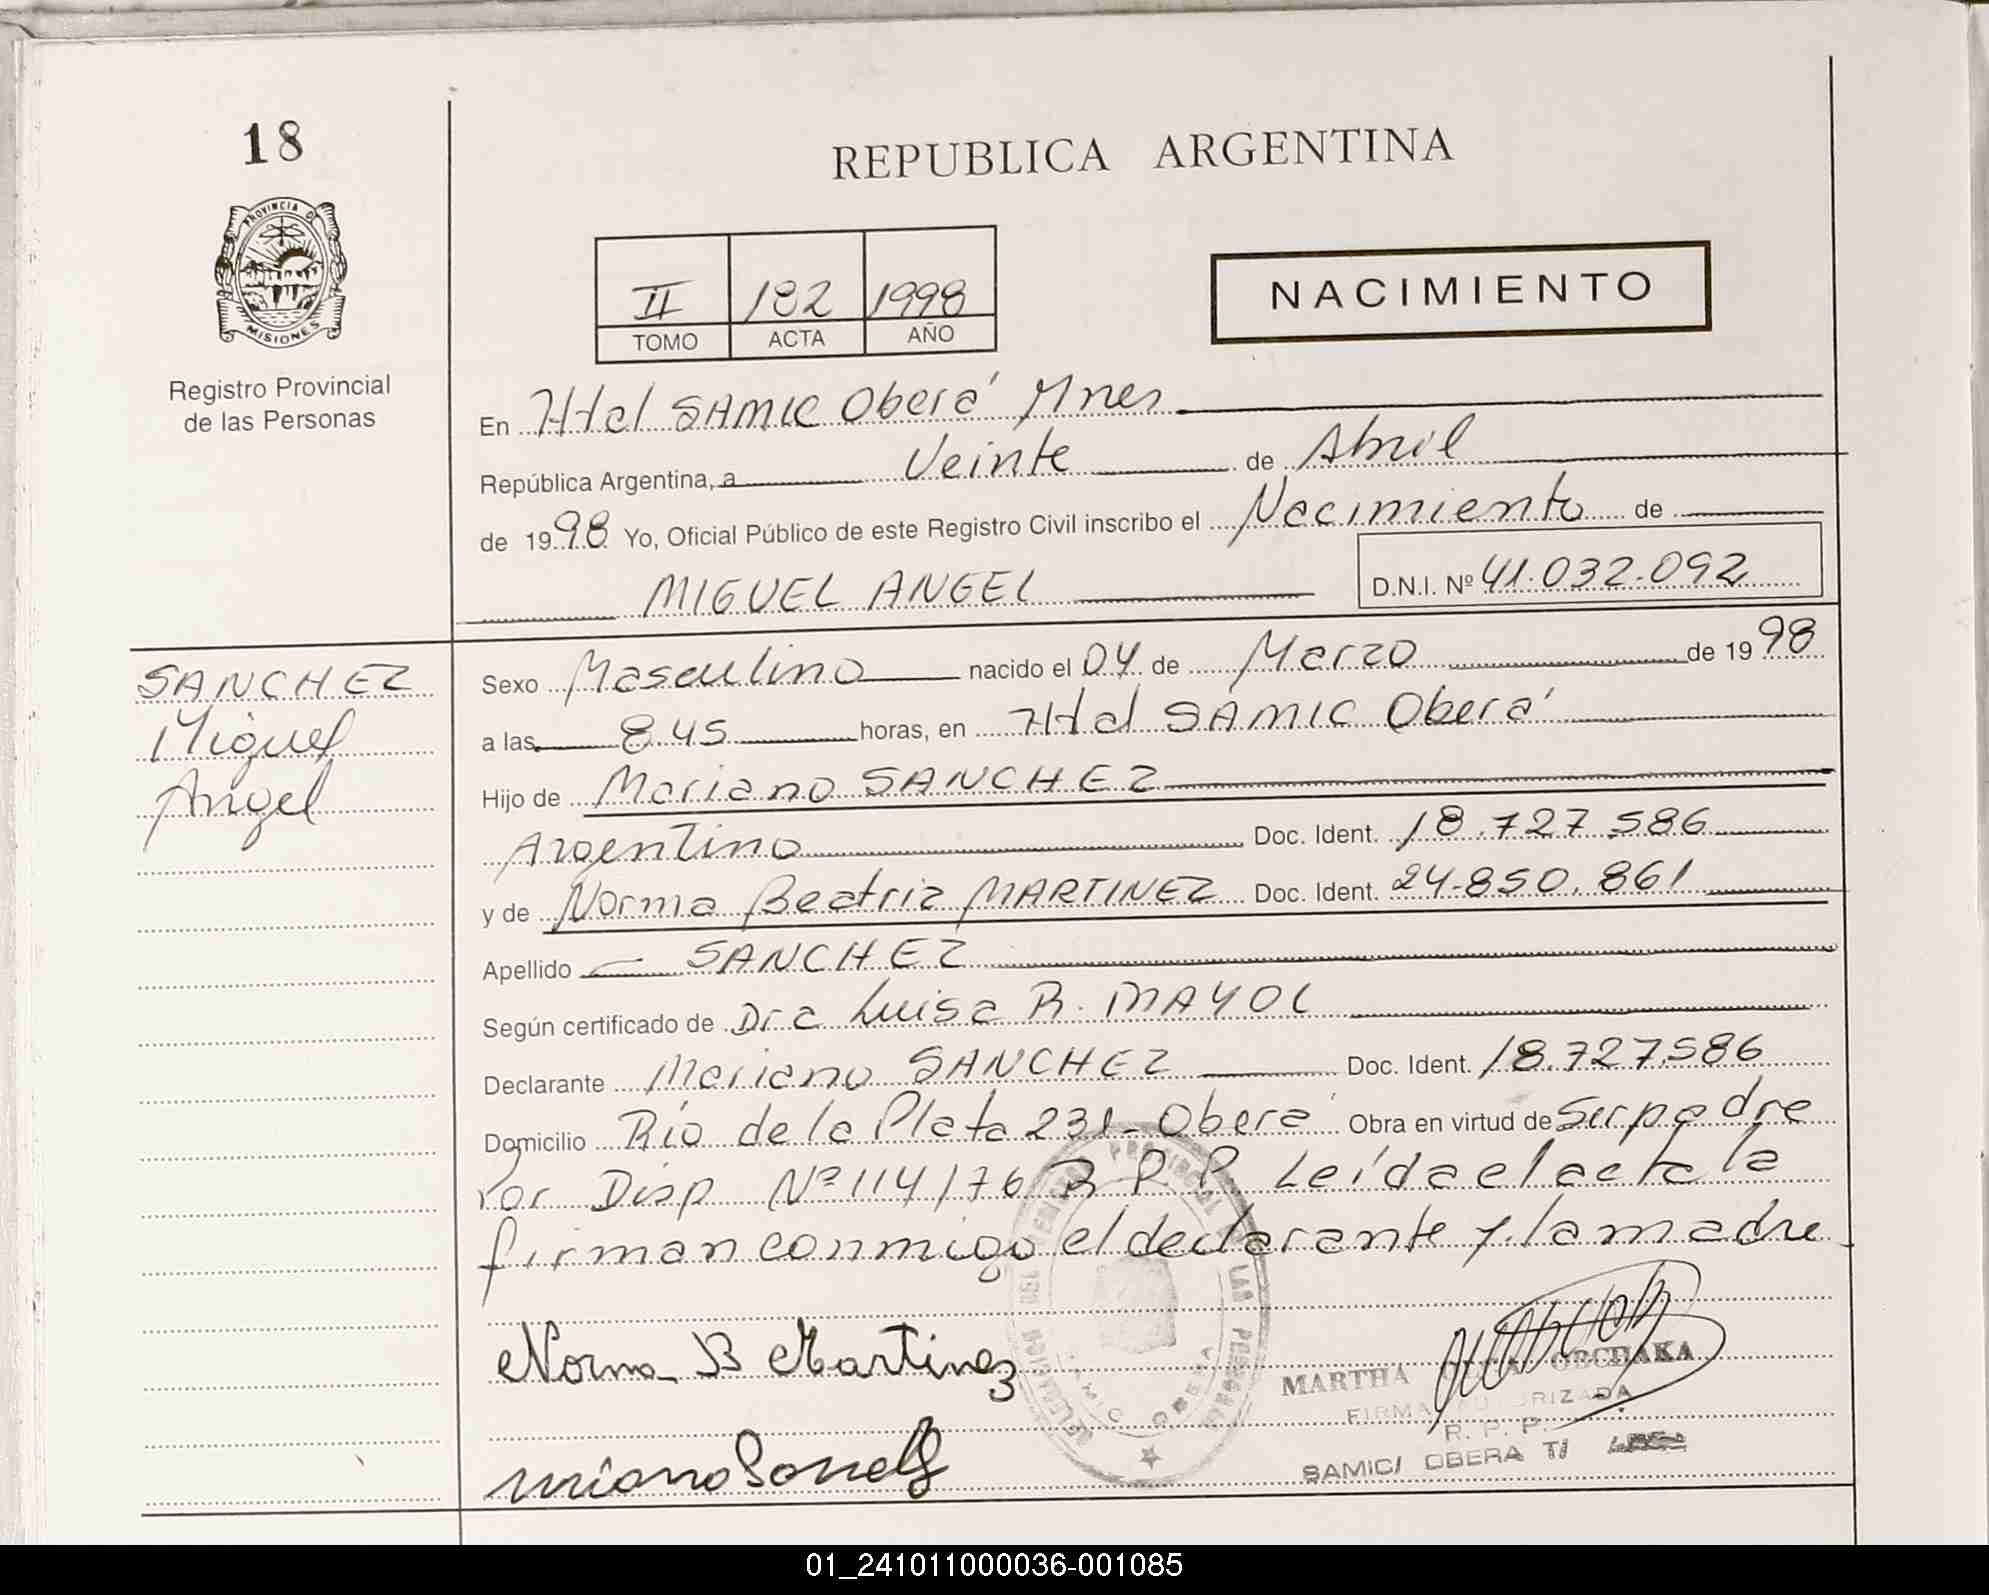 18
REPUBLICA ARGENTINA
PROVINCIA D
MISIONES
Registro Provincial
de las Personas
II 182 1998
TOMO ACTA AÑO
NACIMIENTO
En Htal SAMIC Oberá Mnes
República Argentina, a Veinte de Abril
de 1998 Yo, Oficial Público de este Registro Civil inscribo el Nacimiento de
MIGUEL ANGEL D.N.I. Nº 41.032.092
SANCHEZ
Miguel
Angel
Sexo Masculino nacido el 04 de Marzo de 1998
a las 8.45 horas, en Htal SAMIC Oberá
Hijo de Mariano SANCHEZ
Argentino Doc. Ident. 18.727.586
y de Norma Beatriz MARTINEZ Doc. Ident. 24.850.861
Apellido SANCHEZ
Según certificado de Dra Luisa R. MAYOL
Declarante Mariano SANCHEZ Doc. Ident. 18.727.586
Domicilio Río de la Plata 231 - Oberá Obra en virtud de Ser padre
Por Disp Nº 114/76 R P P. Leída el acta la
firman conmigo el declarante y la madre
Norma B Martinez
MARTHA OBCHAKA
FIRMA AUTORIZADA
R. P. P.
SAMIC/ OBERA T/
01_241011000036-001085